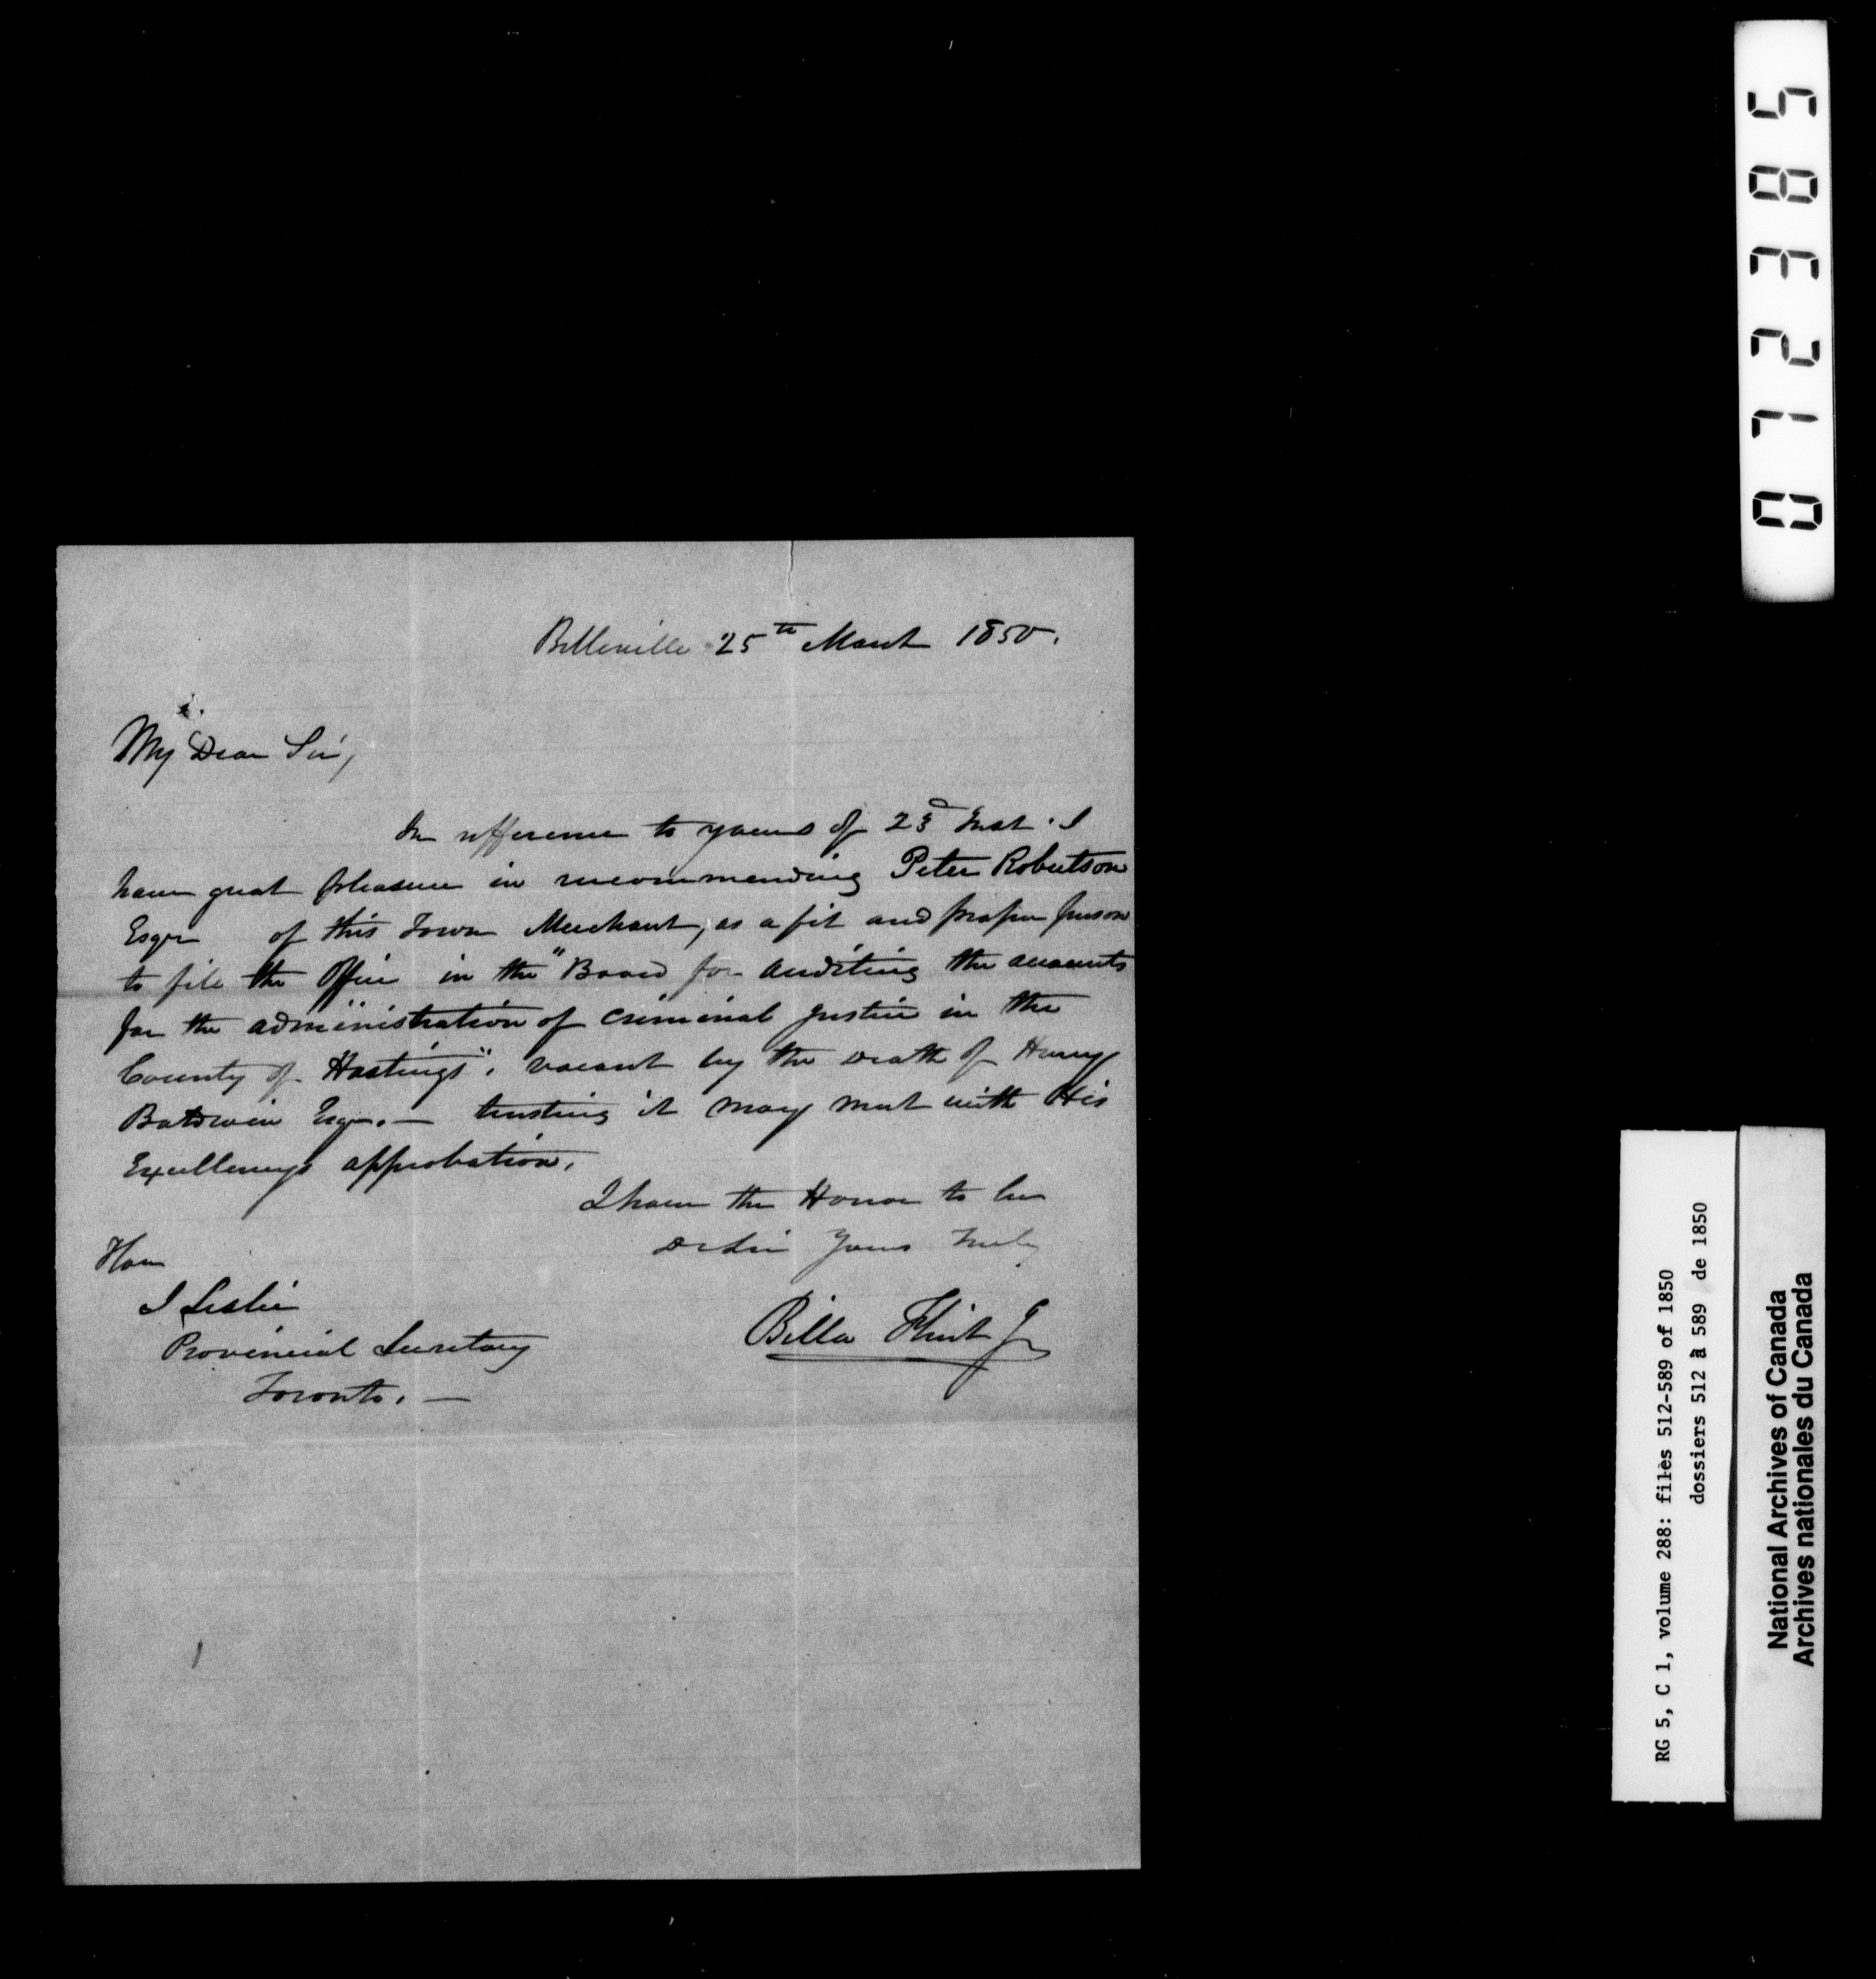 Belleville 25th March 1850.
My Dear Sir,
In refference to yours of 23d Inst. I
have great pleasure in recommending Peter Robertson
Esqr of this Town Merchant, as a fit and proper person
to fill the Office in the "Board for auditing the accounts
for the administration of criminal justice in the
County of Hastings". vacant by the death of Henry
Baldwin Esqr. — trusting it may meet with His
Excellencys approbation.
I have the Honor to be
Dr Sir Yours Truly
Billa Flint Jr
Hon
J Leslie
Provincial Secretary
Toronto. —
583270
RG 5, C 1, volume 288: files 512-589 of 1850
dossiers 512 à 589 de 1850
National Archives of Canada
Archives nationales du Canada